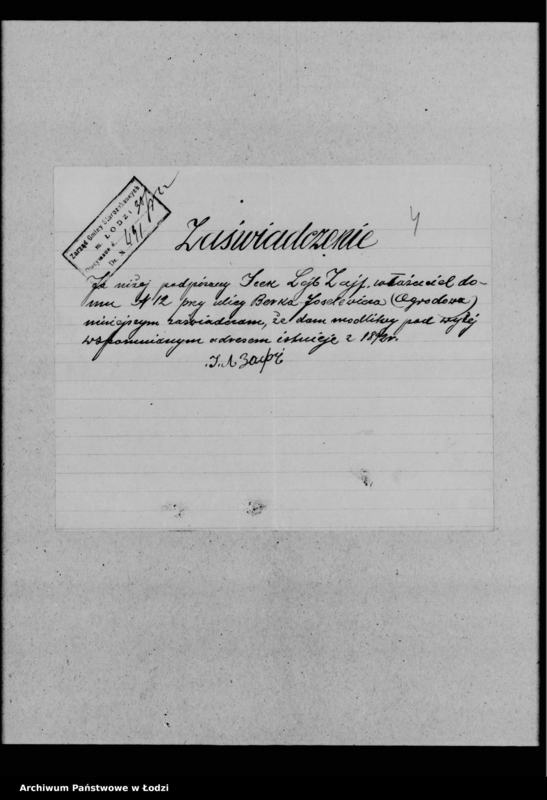 Zarząd Gminy Starozakonnych
m. ŁODZI
Otrzymano d.
Dz. N. 491
4
Zaświadczenie
Ja niżej podpisany Icek Lajb Zajf, właściciel do-
mu № 12 przy ulicy Berka Joselewicza (Ogrodowa)
niniejszym zaświadczam, że dom modlitwy pod wyżej
wspomnianym adresem istnieje z 1892r.
Archiwum Państwowe w Łodzi